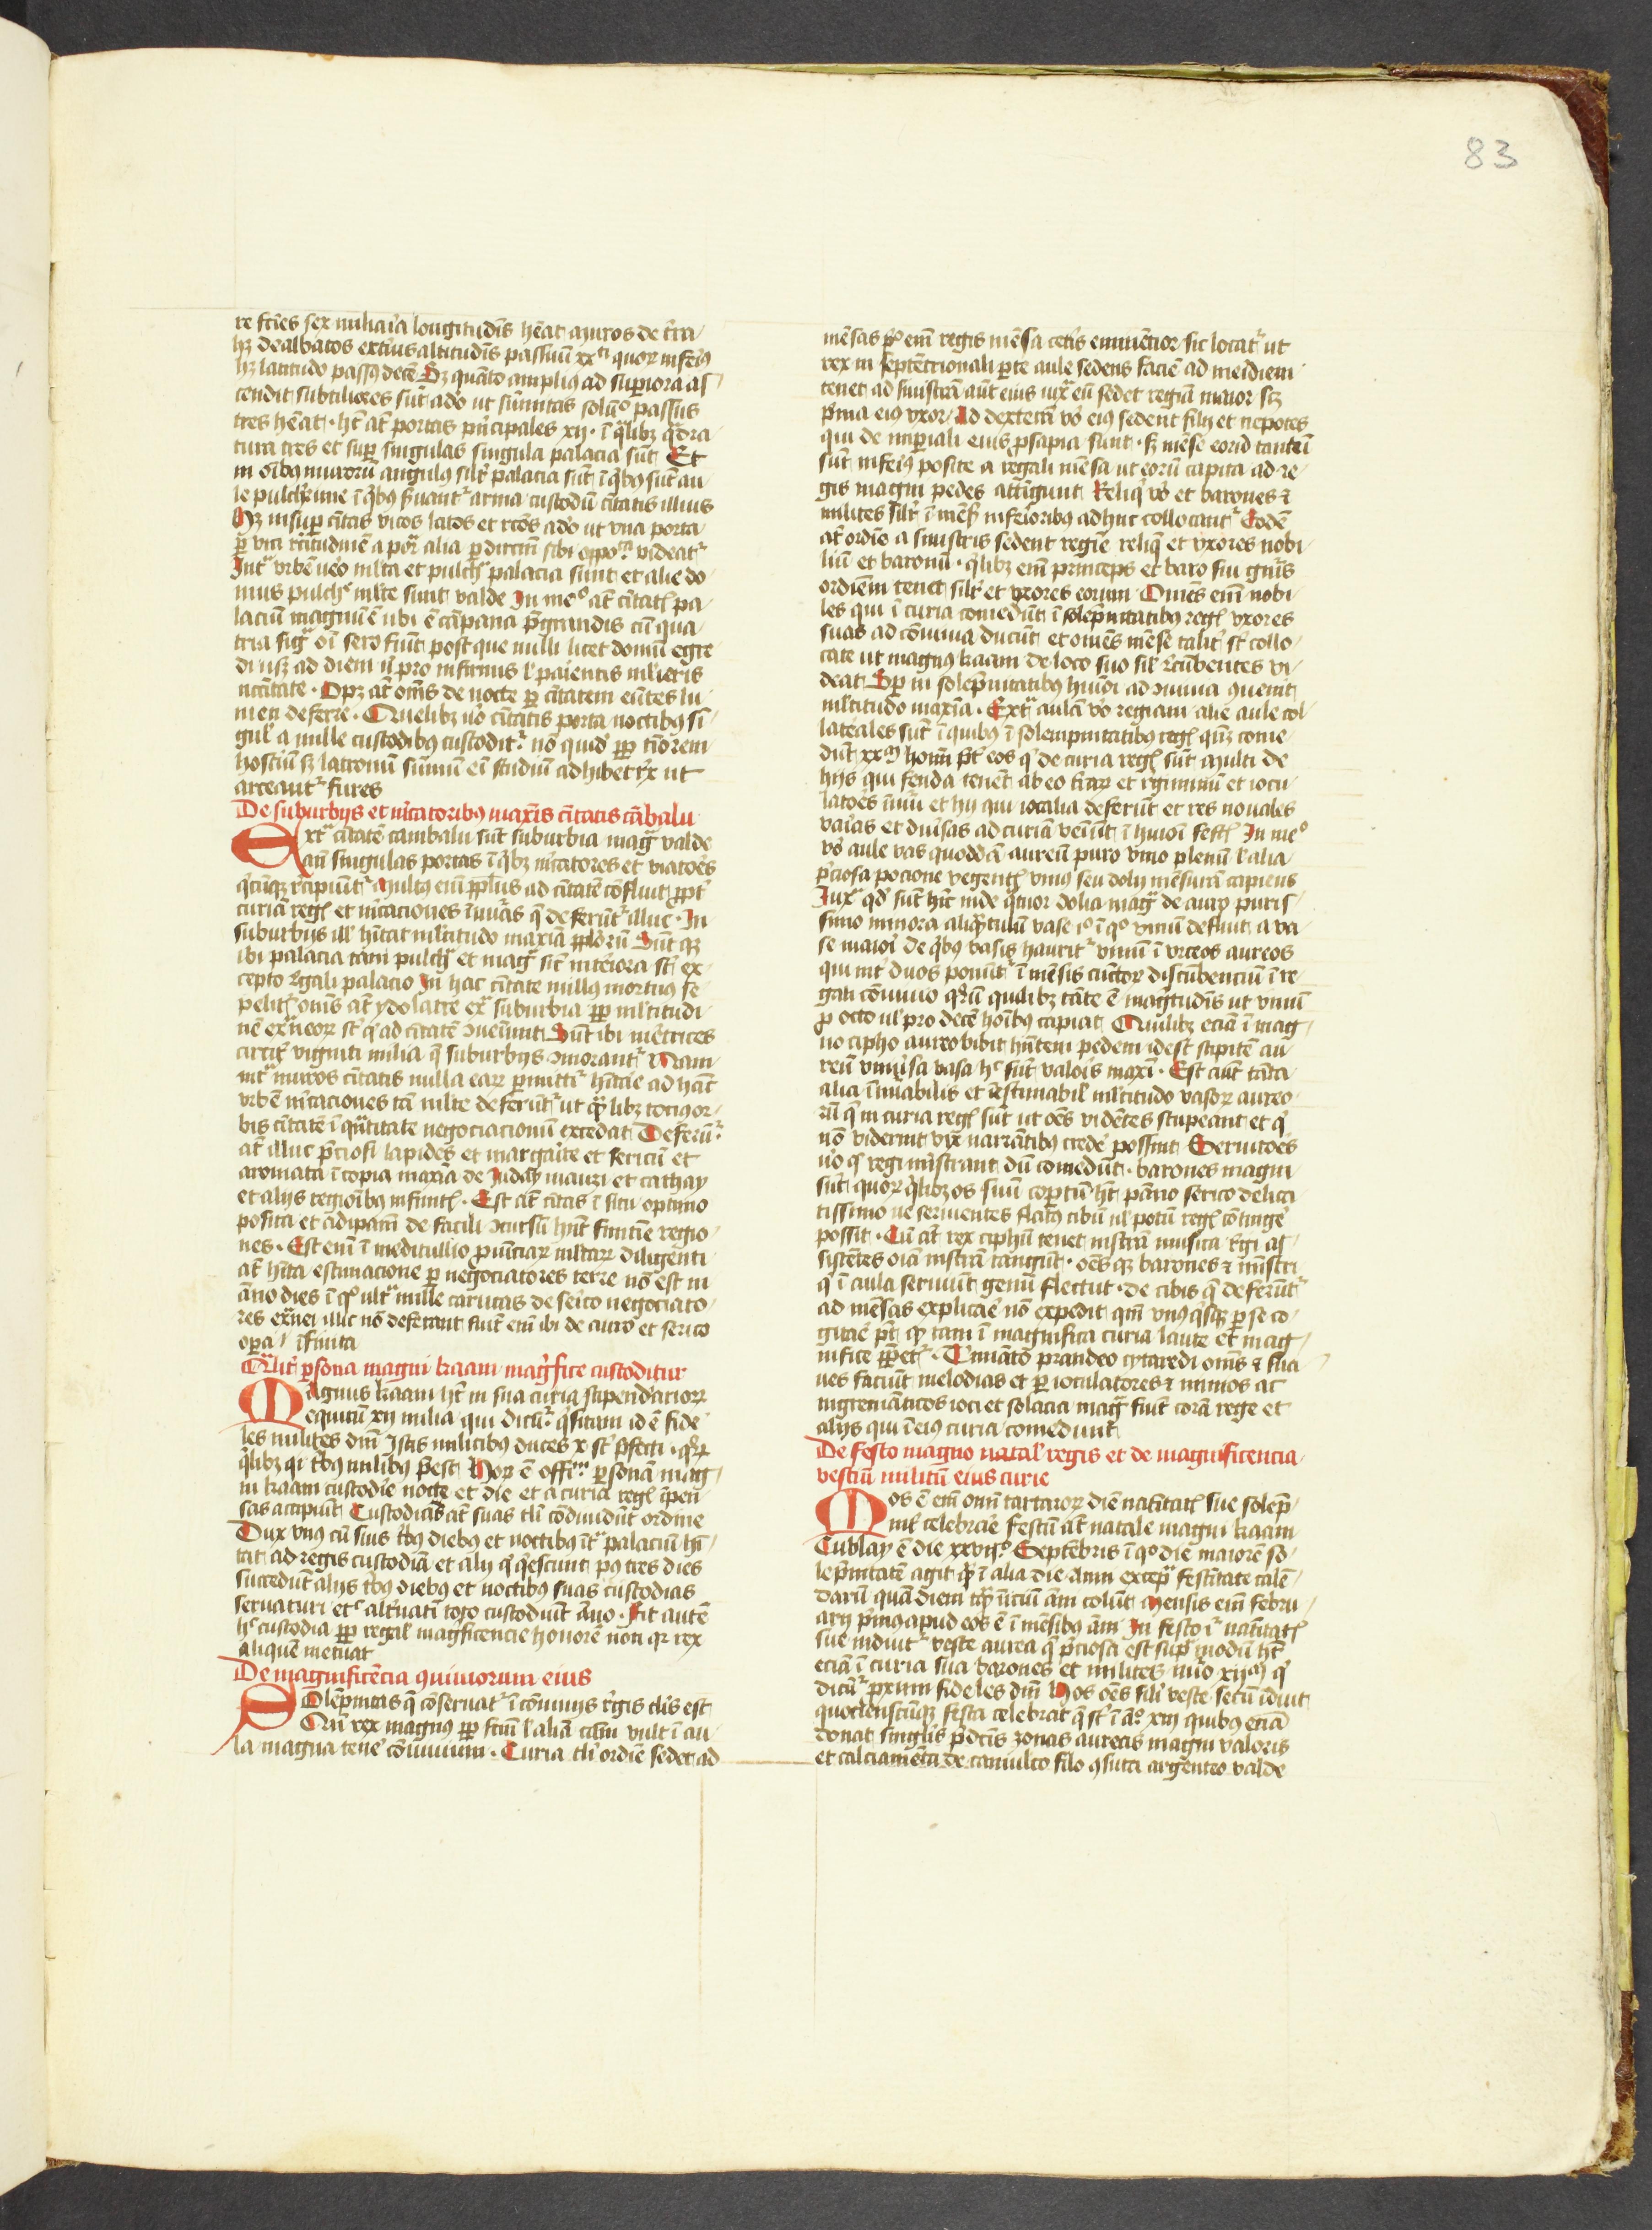 83
re fcies sex miliaria longitudis hēat muros de tra
hz dealbatos exterius altitudis passuū xxti quorum inferius
hz latitudo passus decē Sz quāto amplius ad superiora as
cendit subtiliores sūt adeo ut sūmitas solum passus
tres hēat · ht at portas principales xij · ī qlibz qdra
tura tres et super singulas singula palacia sūt Et
in oibus murorū angulis silr palacia sūt ī qbus sūt au
le pulcherrime ī qbus servantur arma custodū citatis illius
Hz insuper citas vicos latos et rectos adeo ut vna porta
per vici rectitudinē a porta alia per directū sibi opposita videatur
Intra vrbē vero mlta et pulchra palacia sunt et alie do
mus pulchre mlte sunt valde In medio at citatis pa
laciū magnū ē ubi ē cāpana pergrandis cū qua
tria signa oi sero fiunt post que nulli licet domū egre
di usqz ad diem nisi pro infirmis vel parientis mulieris
necitate · Opz at omīs de nocte per citatem eūtes lu
men deferre · Quelibz vo citatis porta noctibus sī
gulis a mille custodibus custoditur nō quidem propter timorem
hostiū sz latronū sūmū ei studiū adhibet rex ut
arceantur fures
De suburbijs et mercatoribus maxīs citatis cābalu
Extra citatē cambalu sūt suburbia magna valde
an singulas portas ī qbz mercatores et viatores
qcunqz recipiuntur Multus enī populus ad citatē cōfluit propter
curiā regis et mercaciones īnumeras que deferūtur illuc · In
suburbijs illis habitat multitudo maxīa populorū Sunt qz
ibi palacia tam pulchra et magna sicut interiora sūt ex
cepto regali palacio In hac citate nullus mortuus se
pelitur omīs at ydolatre extra suburbia propter multitudi
nē extraneorum sūt q ad citatē conveniunt Sunt ibi meretrices
circiter viginti milia que suburbijs cōmorantur Nam
intra muros citatis nulla earum permittitur habitare ad hanc
vrbē mercaciones tā mlte deferūtur ut quamlibz tocius or
bis citatē ī quātitate negociacionū excedat Deferūtur
at illuc preciosi lapides et margarite et sericū et
aromata ī copia maxīa de Indijs manzi et cathay
et alijs regionibus infinitis · Est at citas ī situ optimo
posita et ad ipsam de facili cōcursū hnt finitime regio
nes · Est enī ī meditullio provinciarum multarum diligenti
at habita estimacione per negociatores terre nō est in
āno dies ī quo ultra mille carucas de serico negociato
res extranei illuc nō deferant fiunt enī ibi de auro et serico
opera īfinita
Qualiter persona magni kaam magnifice custoditur
Magnus kaam ht in sua curia stipendiariorum
equitū xij milia qui dicūtur qsitam id ē fide
les milites dni Istis militibus duces x sūt prefecti · quorum
qlibz qi tribus milibus preest Horum ē officium personā mag
ni kaam custodire nocte et die et a curia regis īpen
sas accipiūt Custodias at suas tli cōdividūt ordine
Dux vnus cū suis tribus diebus et noctibus intra palaciū habi
tat ad regis custodiā et alij q qescunt post tres dies
succedūt alijs tribus diebus et noctibus suas custodias
servaturi et sic alternatim toto custodiunt āno · Fit autē
hec custodia propter regalis magnificencie honorē non quia rex
aliquē metuat
De magnificēcia quiuiorum eius
Solēpnitas que cōseruatur ī cōuiuijs regis tlis est
Cum rex magnus propter festum vel aliā cām vult ī au
la magna tenere cōuiuium · Curia tli ordīe sedet ad
mēsas primo enī regis mēsa ceteris eminētior sic locatur ut
rex in septētrionali parte aule sedens faciē ad meridiem
tenet ad sinistrā aūt eius iuxta eū sedet regina maior scz
prima eius vxor Ad dexteram vo eius sedent filij et nepotes
qui de imperiali eius prosapia sunt · sz mēse eorundem tantum
sūt inferius posite a regali mēsa ut eorū capita ad re
gis magni pedes attīgunt Reliqui vo et barones et
milites silr ī mēsis inferioribus adhuc collocantur Eodē
at ordīe a sinistris sedent regine reliq et vxores nobi
liū et baronū · qlibz enī princeps et baro sui generis
ordinem tenet silr et vxores eorum Omīes enī nobi
les qui ī curia comedūt ī solēpnitatibus regis vxores
suas ad cōuiuia ducūt et omēs mēse taliter sūt collo
cate ut magnus kaam de loco suo simul recūbentes vi
deat Semper in solēpnitatibus huiusmodi ad cōuiuia conuenit
multitudo maxīa · Extra aulā vo regiam alie aule col
laterales sūt ī quibus ī solempnitatibus regis quandoqz come
dūt xxm hominum preter eos q de curia regis sūt multi de
hijs qui feuda tenēt ab eo terrarum et regiminū et iocu
latores innumeri et hij qui iocalia deferūt et res nouales
varias et diuersas ad curiā veniūt ī huiusmodi festis In medio
vo aule vas quoddā aureū puro vino plenū vel alia
preciosa pocione regentis vnius seu dolij mēsurā capiens
Iuxta quod sunt hinc inde quatuor dolia magna de auro puris
simo minora aliqtulum vase illo ī quo vinū defluit a va
se maiori de qbus vasis hauritur vinū ī vrceos aureos
qui inter duos ponūtur ī mēsis cunctorum discūbenciū ī re
gali cōuiuio quorū qualibz tāte ē magnitudis ut vinū
pro octo vel pro decē hoībus capiat Quilibz eciā ī mag
no cipho aureo bibit hntem pedem idest stipitē au
reū vniuersa vasa hec sunt valoris maxī · Est aut tāta
alia īnumerabilis et īestimabilis multitudo vasorum aureo
rū que in curia regis sūt ut oēs vidētes stupeant et q
nō viderint vix narrātibus credere possint Seruitores
vo q regi ministrant dū comedūt · barones magni
sūt quorum qlibz os suū coopertū ht pāno serico delica
tissimo ne seruientes flatus cibū vel potū regis cōtingere
possit · Cū at rex ciphū tenet instrumenta musica regi as
sistētes oīa instrumenta tangūt · oēs qz barones et ministri
q ī aula seruiūt genu flectūt · de cibis que deferūtur
ad mēsas explicare nō expedit qm vnusqsqz per se co
gitare potest qz tam ī magnifica curia laute et mag
nifice preparētur · Terminato prandeo cytaredi omīs et sua
ues faciūt melodias et per ioculatores et mimos ac
nigremāticos ioci et solacia magna fiunt corā rege et
alijs qui ī eius curia comedunt
De festo magno natalis regis et de magnificencia
vestiū militū eius curie
Mos ē enī omī tartarorum diē natiuitatis sue solēp
niter celebrare Festū at natale magni kaam
Cublay ē die xxviijo Septēbris ī quo die maiorē so
lēpnitatē agit quam ī alia die anni excepta festiuitate calē
darū quā diem tartari initiū anni colūt Mensis enī febru
arij primus apud eos ē ī mēsibus anni In festo igitur natiuitatis
sue induitur veste aurea que preciosa est supra modū ht
eciā ī curia sua barones et milites numero xijm q
dicūtur proximi fideles dni Hos oēs simili veste secū induit
quociēscūqz festa celebrat que sūt ī āno xiij quibus eciā
donat singulis predictis zonas aureas magni valoris
et calciamēta de camulco filo consuta argēnteo valde